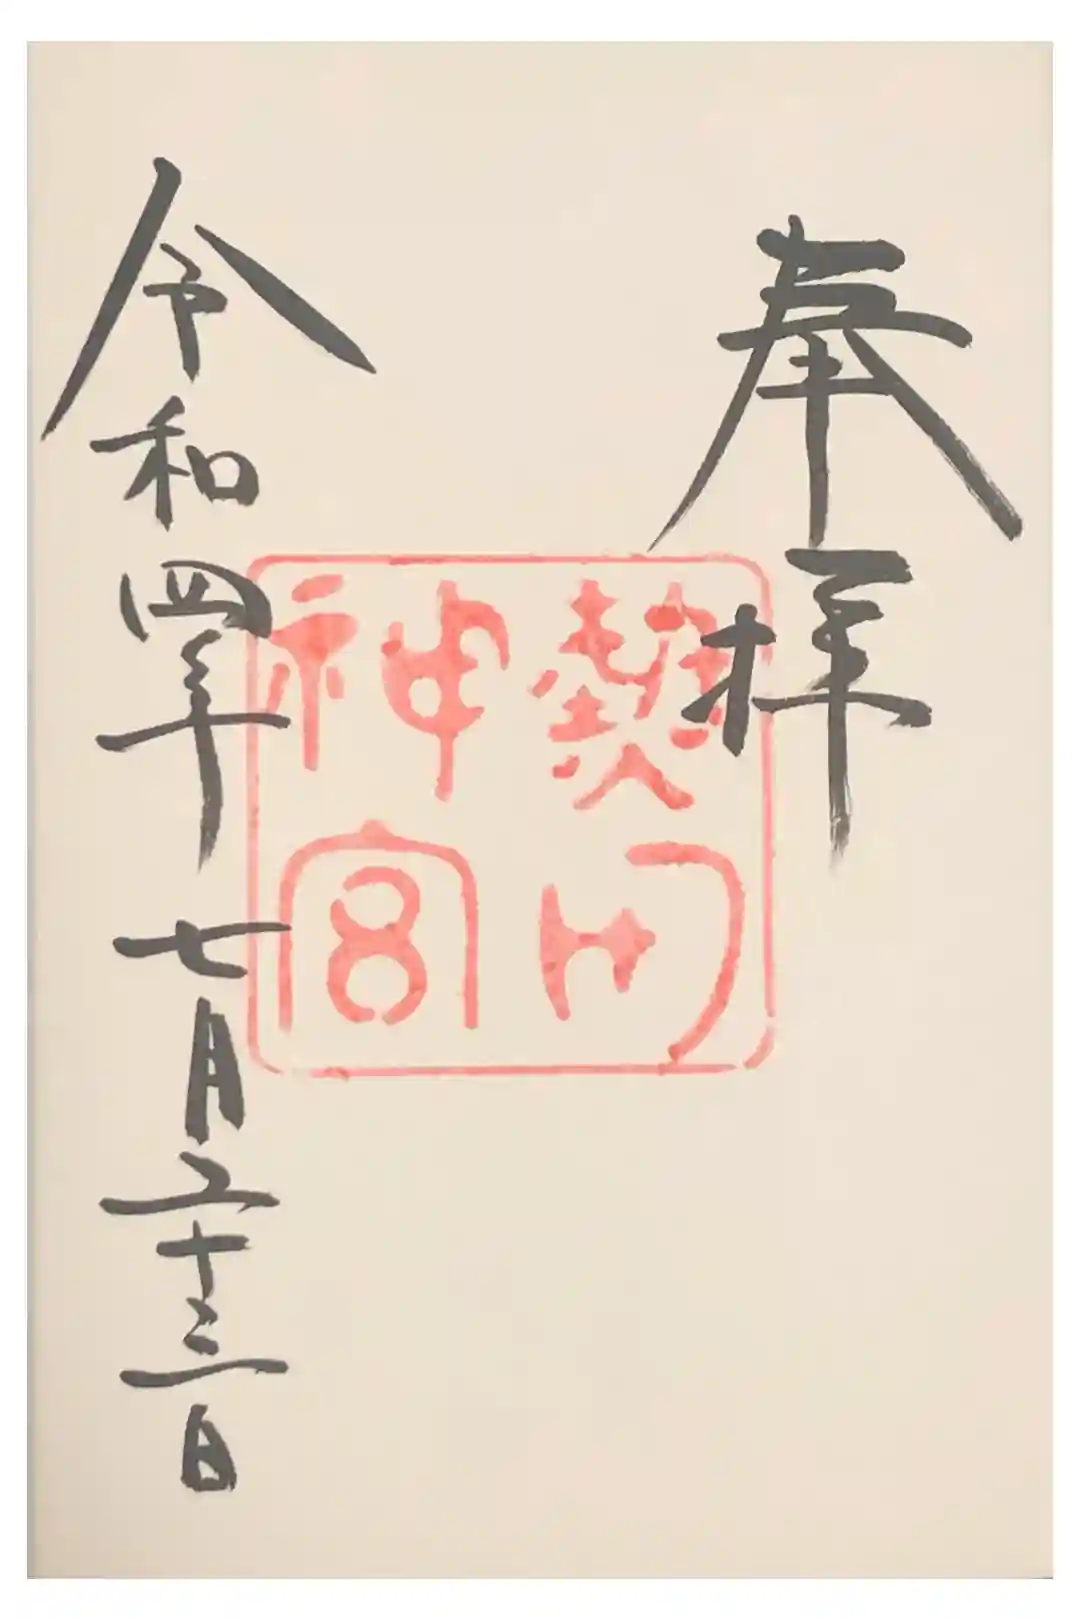 奉拝
熱田
神宮
令和四年 七月二十三日